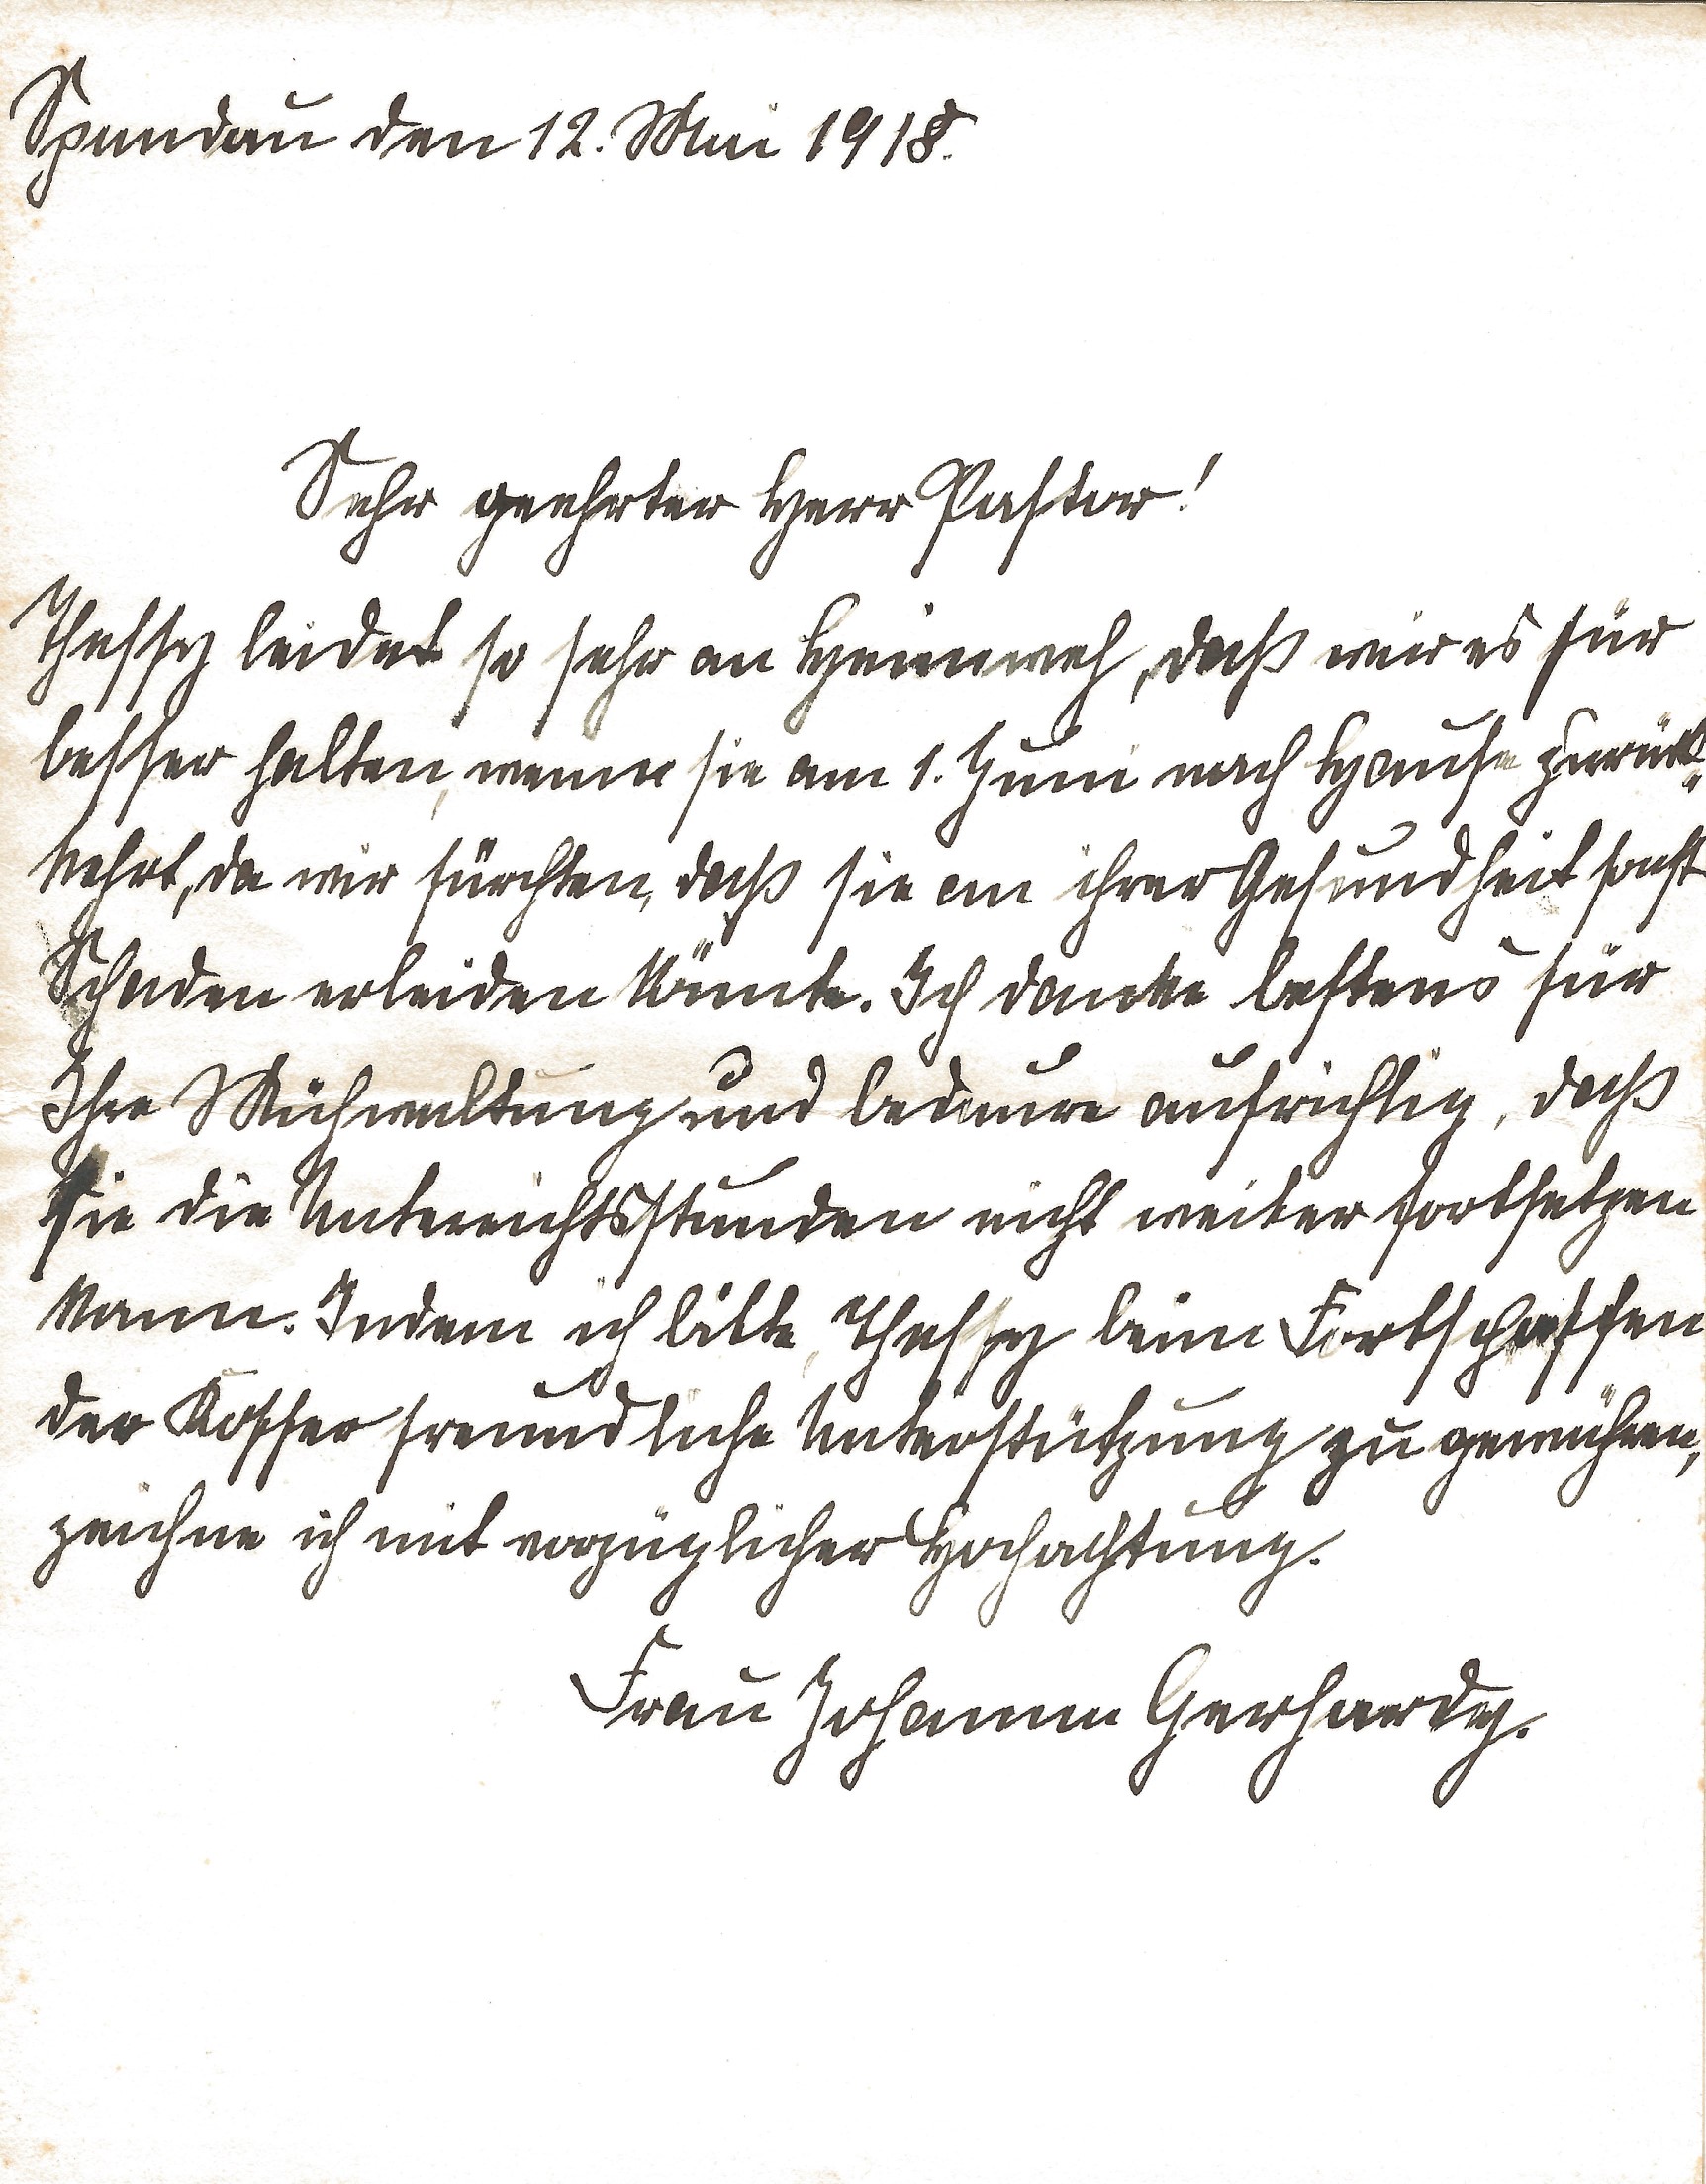 Spandau den 12. Mai 1918.
Sehr geehrter Herr Pastor!
Thessy leidet so sehr an Heimweh, daß wir es für
besser halten, wenn sie am 1. Juni nach Hause zurück-
kehrt, da wir fürchten, daß sie an ihrer Gesundheit sonst
Schaden erleiden könnte. Ich danke bestens für
Ihre Mühwaltung und bedaure aufrichtig, daß
sie die Unterrichtsstunden nicht weiter fortsetzen
kann. Indem ich bitte, Thessy beim Fortschaffen
der Koffer freundliche Unterstützung zu gewähren,
zeichne ich mit vorzüglicher Hochachtung.
Frau Johanna Gerhardy.